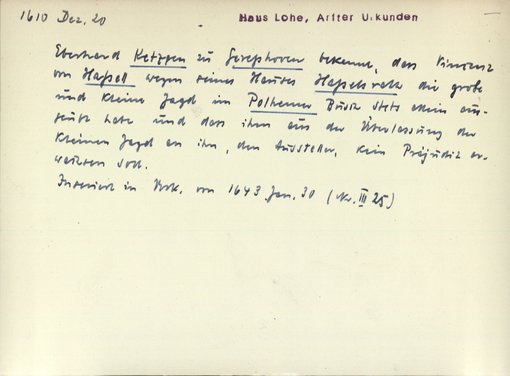 1610 Dez. 20
Haus Lohe, Arfter Urkunden
Eberhard Ketzgen zu Gerephoven bekennt, dass Vincenz
von Hassell wegen seines Hauses Hasselsrath die grobe
und kleine Jagd im Polhemer Busch stets allein aus-
geübt habe und dass ihm aus der Überlassung der
kleinen Jagd an ihn, den Aussteller, kein Präjudiz er-
wachsen soll.
Inseriert in Urk. von 1643 Jan. 30 (Nr. III 25)